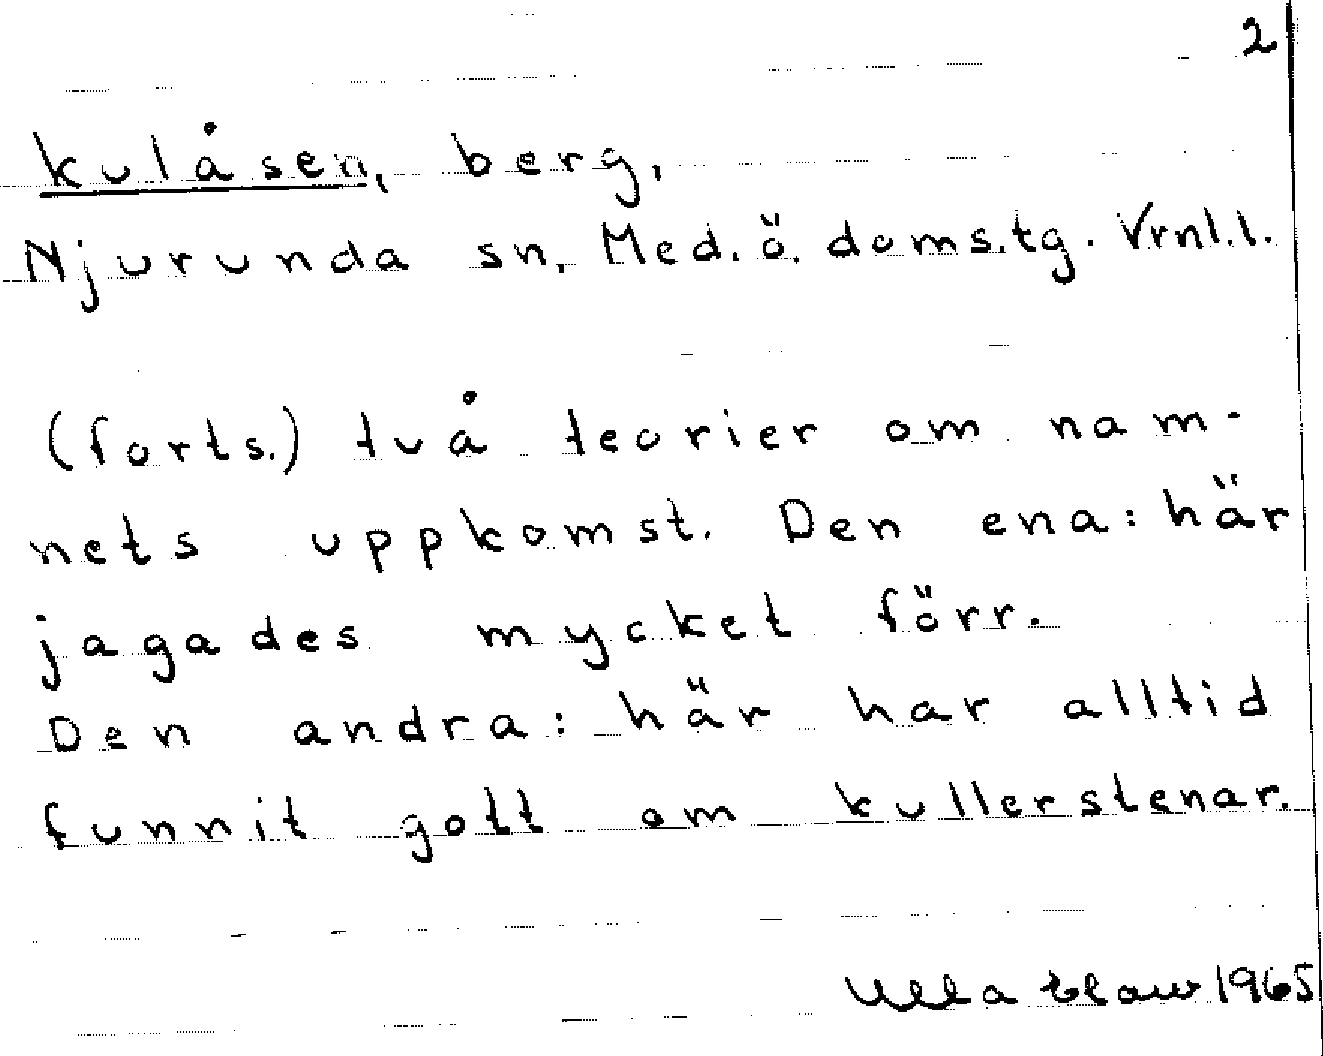 2
kulåsen, berg,
Njurunda sn, Med. ö. doms.tg. Vrnl.l.
(forts.) två teorier om nam-
nets uppkomst. Den ena: här
jagades mycket förr.
Den andra: här har alltid
funnit gott om kullerstenar.
Ulla 1965